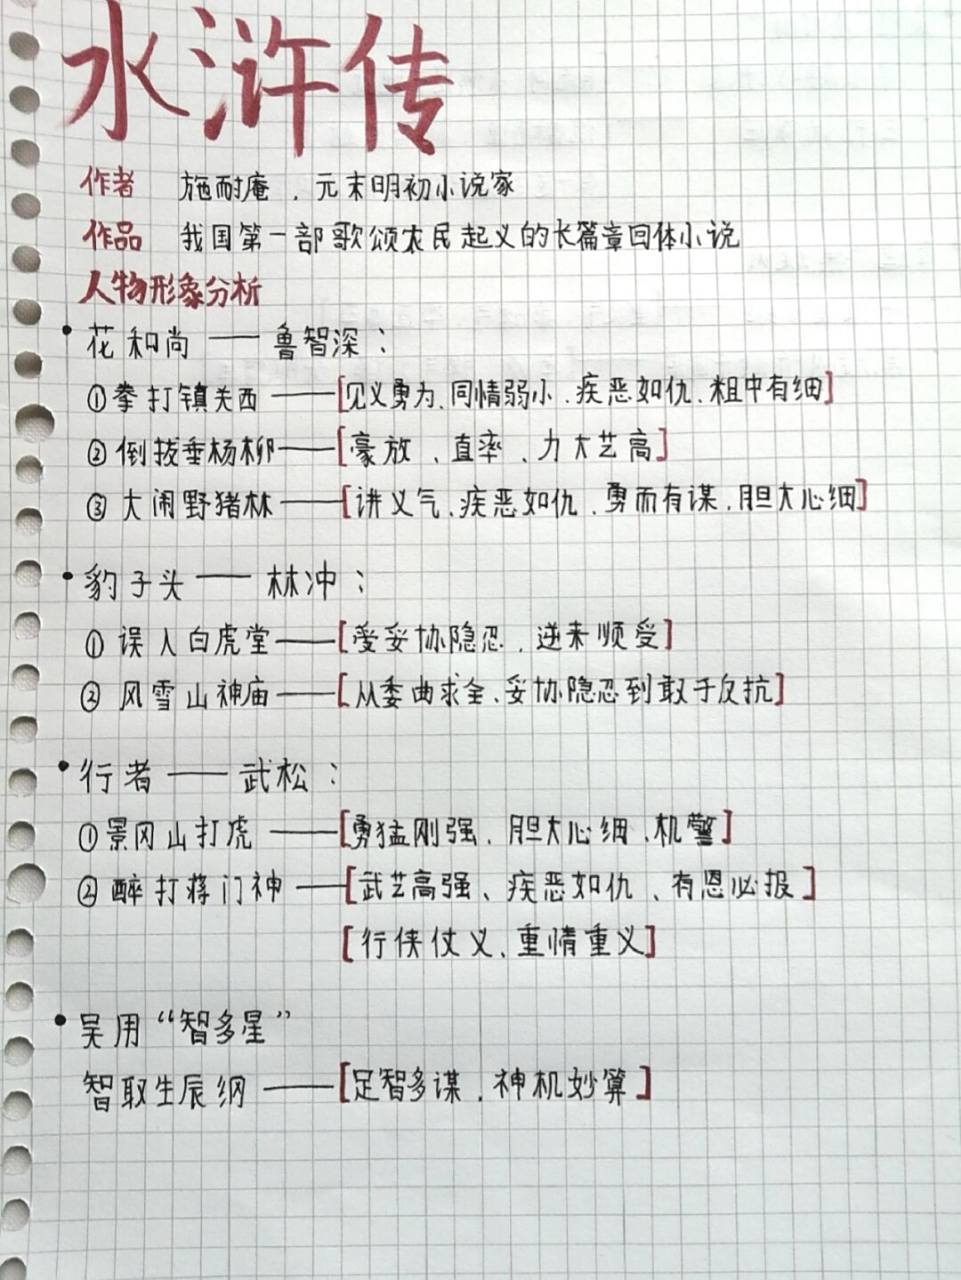 水浒传
作者 施耐庵，元末明初小说家
作品 我国第一部歌颂农民起义的长篇章回体小说
人物形象分析
• 花和尚 —— 鲁智深：
①拳打镇关西 ——[见义勇为、同情弱小、疾恶如仇、粗中有细]
②倒拔垂杨柳——[豪放、直率、力大艺高]
③大闹野猪林——[讲义气、疾恶如仇、勇而有谋、胆大心细]
• 豹子头 —— 林冲：
①误入白虎堂——[受妥协隐忍，逆来顺受]
②风雪山神庙——[从委曲求全、妥协隐忍到敢于反抗]
• 行者 —— 武松：
①景冈山打虎 ——[勇猛刚强、胆大心细、机警]
②醉打蒋门神 ——[武艺高强、疾恶如仇、有恩必报]
[行侠仗义、重情重义]
• 吴用“智多星”
智取生辰纲 ——[足智多谋，神机妙算]